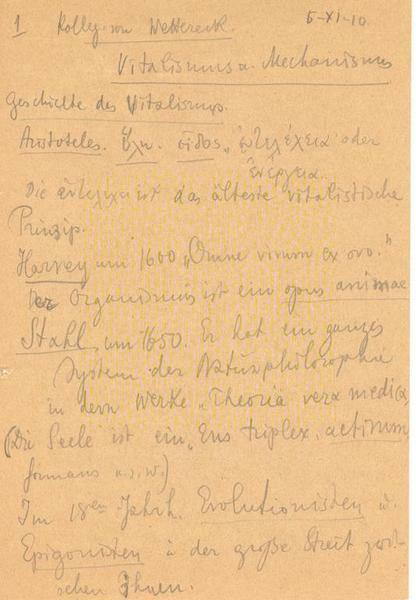 1 Kolleg von Wettereck. 5-XI-10
Vitalismus u. Mechanismus
Geschichte des Vitalismus.
Aristoteles. ὕλη. εἶδος, ἐντελέχεια oder
ἐνέργεια.
Die ἐντελέχεια ist das älteste vitalistische
Prinzip.
Harvey um 1600 „Omne vivum ex ovo."
Der Organismus ist ein opus animae
Stahl, um 1650. Er hat ein ganzes
System der Naturphilosophie
in dem Werke „Theoria vera medica,
(Die Seele ist ein „Ens triplex, activum
formans u.s.w.)
Im 18ten Jahrh. Evolutionisten u.
Epigonisten u der große Streit zwi-
schen Ihnen.